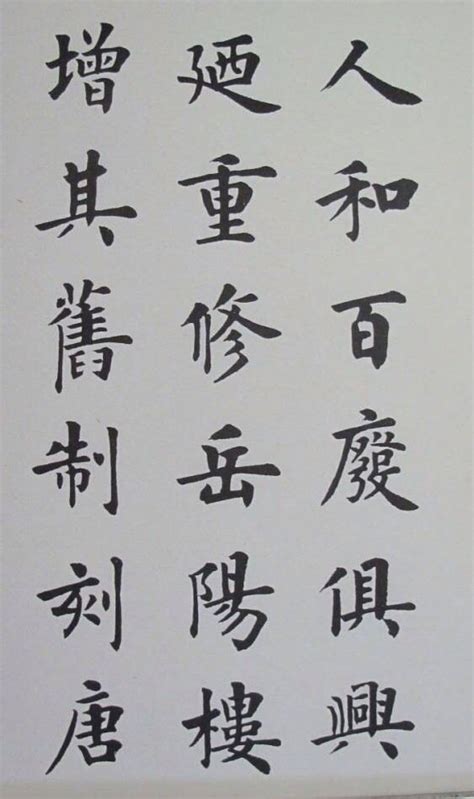 人和百廢俱興
廼重修岳陽樓
增其舊制刻唐